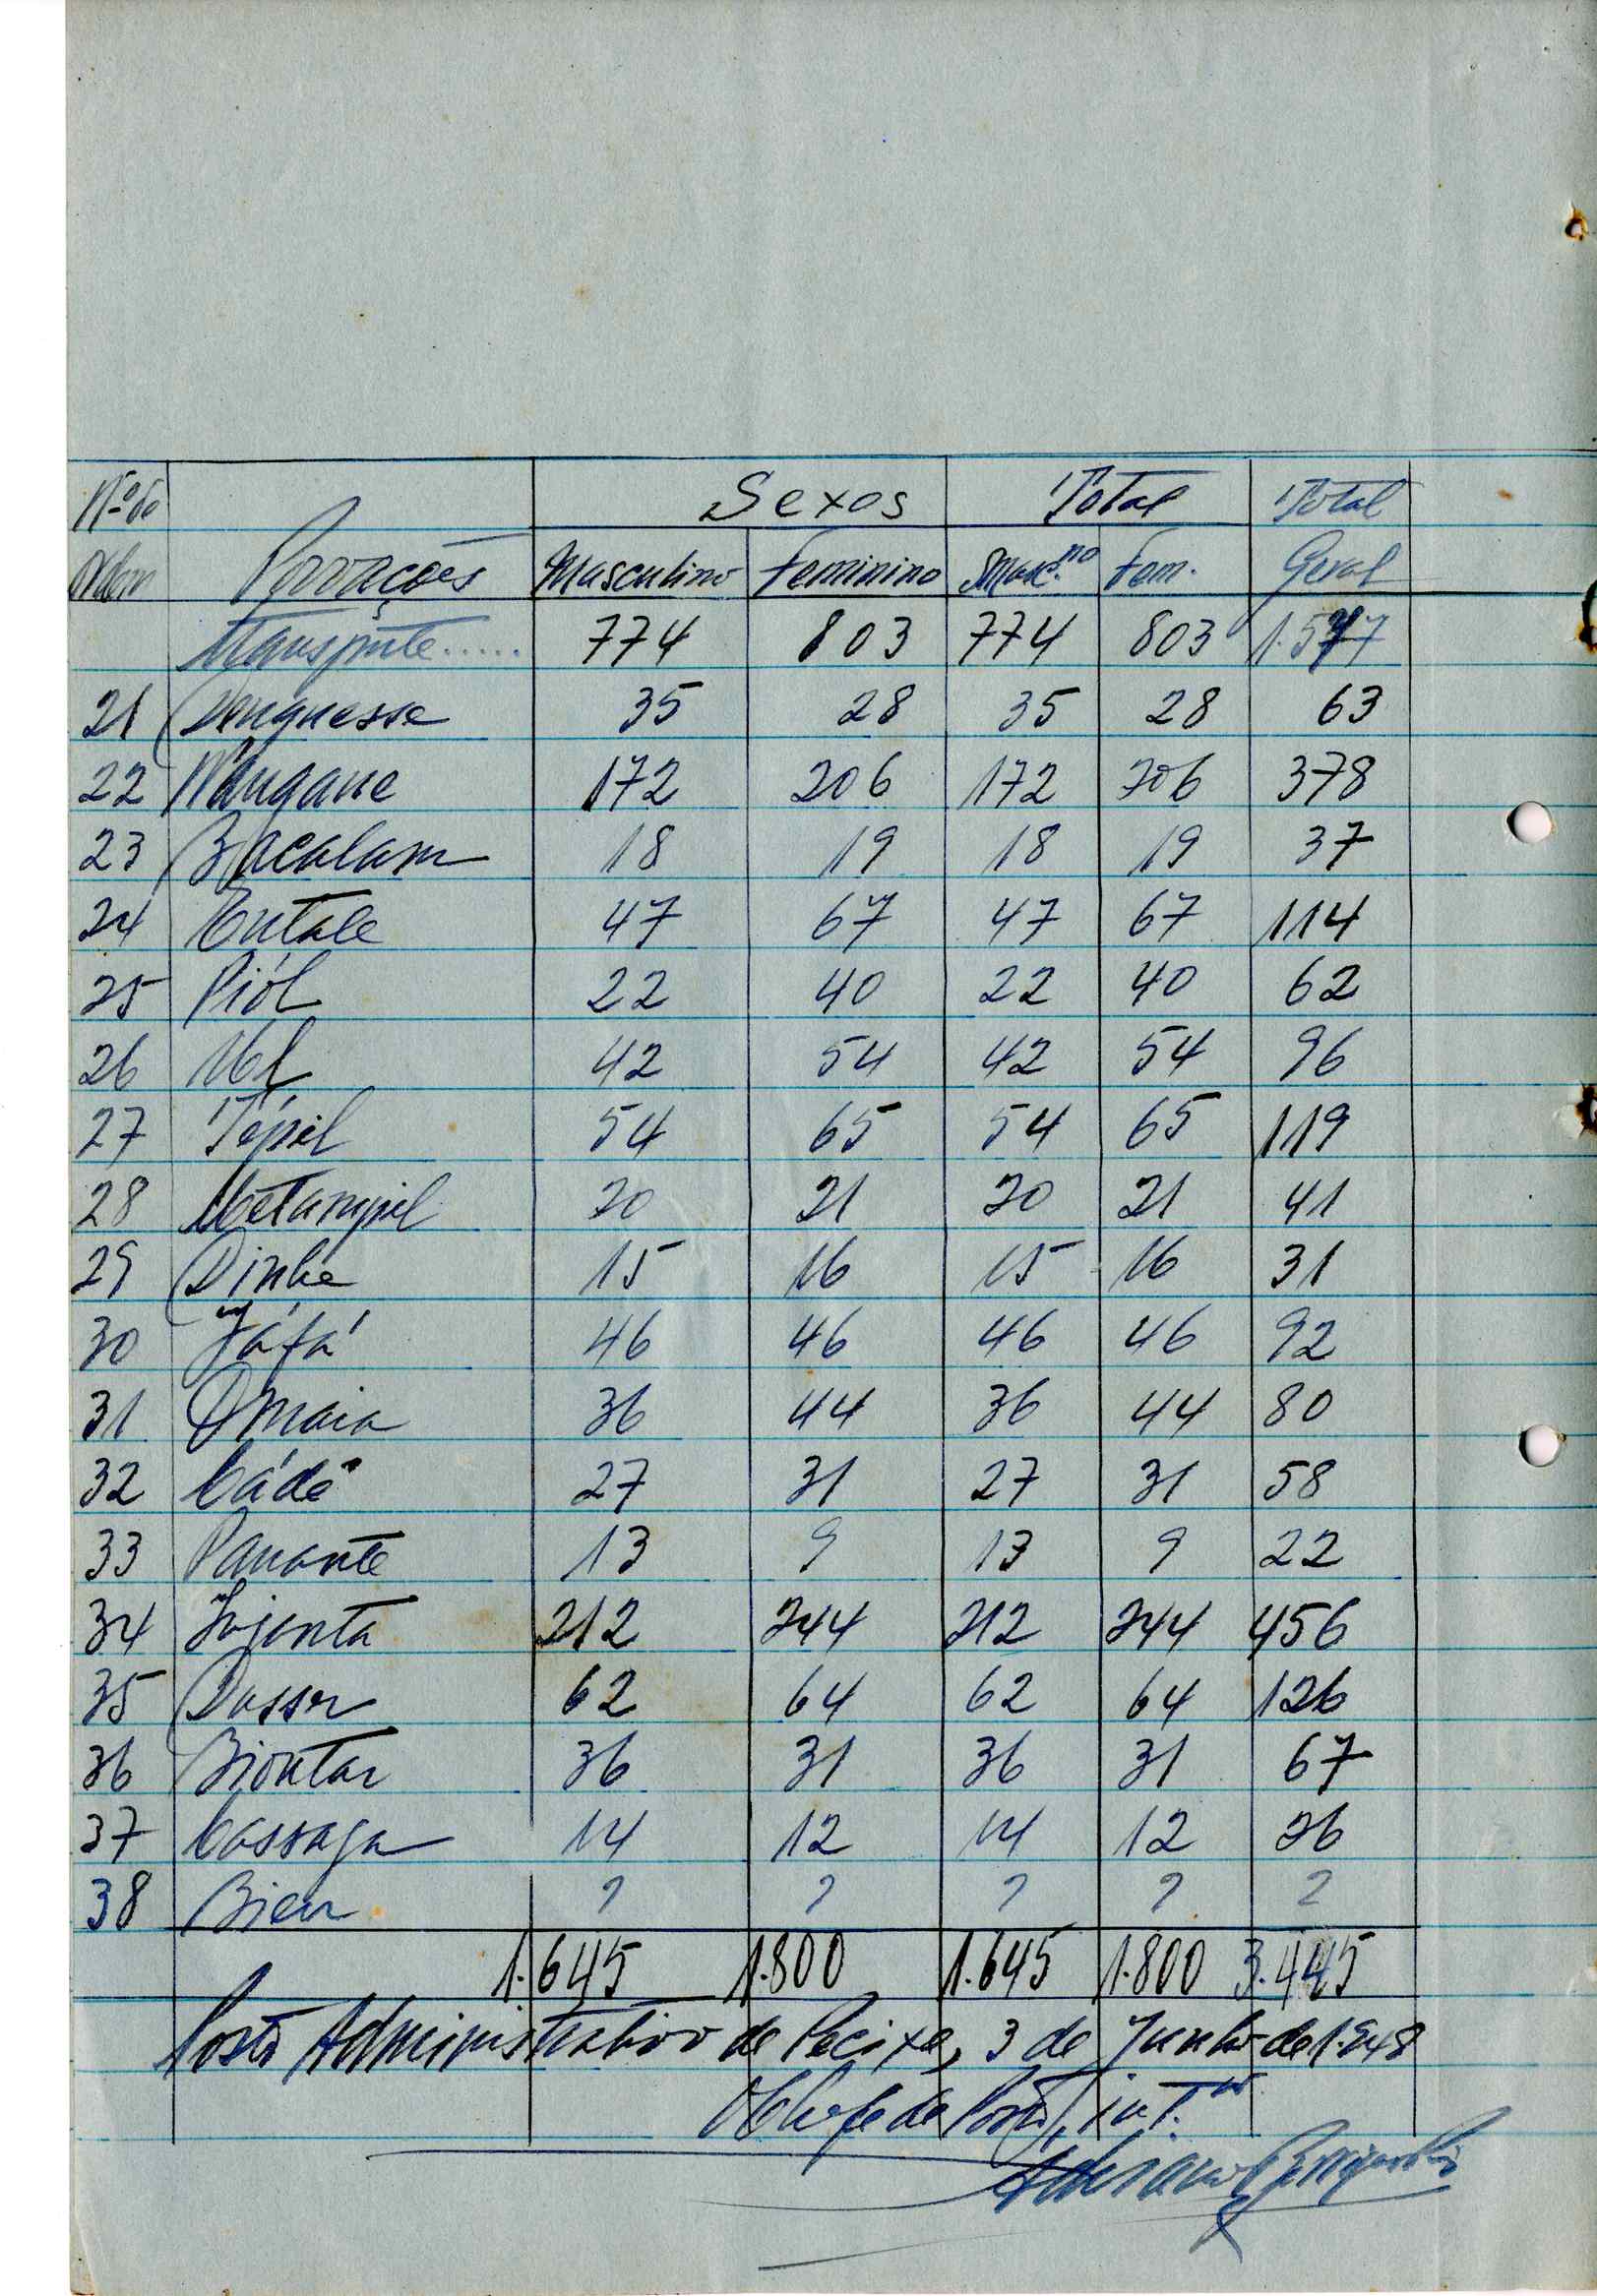 Nº de Sexos Total Total
Ordem Povoações Masculino Feminino Masc.no Fem. Geral
Transporte...... 774 803 774 803 1.577
21 Denguesse 35 28 35 28 63
22 172 206 172 206 378
23 Bacalam 18 19 18 19 37
24 Entale 47 67 47 67 114
25 Piól 22 40 22 40 62
26 42 54 42 54 96
27 Tépil 54 65 54 65 119
28 20 21 20 21 41
29 Dinhe 15 16 15 16 31
30 Jáfá 46 46 46 46 92
31 Omaia 36 44 36 44 80
32 Cádê 27 31 27 31 58
33 Panante 13 9 13 9 22
34 212 244 212 244 456
35 62 64 62 64 126
36 Biontar 36 31 36 31 67
37 Cassaga 14 12 14 12 26
38 ? ? ? ? ?
1.645 1.800 1.645 1.800 3.445
Posto Administrativo de Pecixe, 3 de Junho de 1.948
O Chefe de Posto, int.º